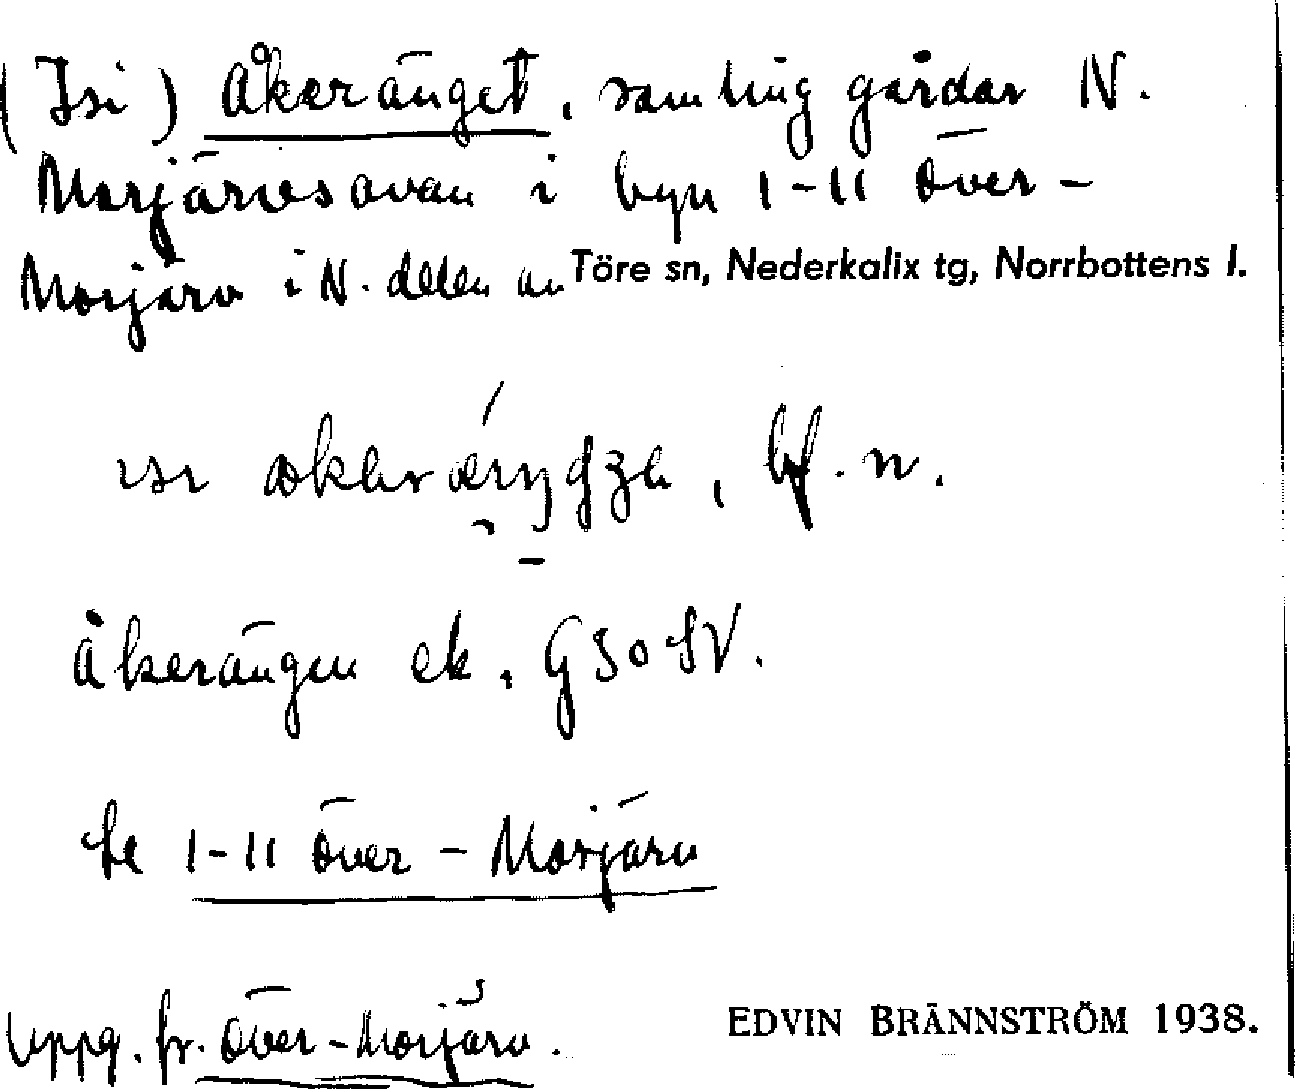 (Isi) Åkeränget, samling gårdar N.
Morjärvsavan i byn 1-11 Över-
Morjärv i N. delen av Töre sn, Nederkalix tg, Norrbottens l.
bf. n.
Åkerängen ek, GSo SV.
Se 1-11 Över-Morjärv
Uppg. fr. Över-Morjärv.
EDVIN BRÄNNSTRÖM 1938.